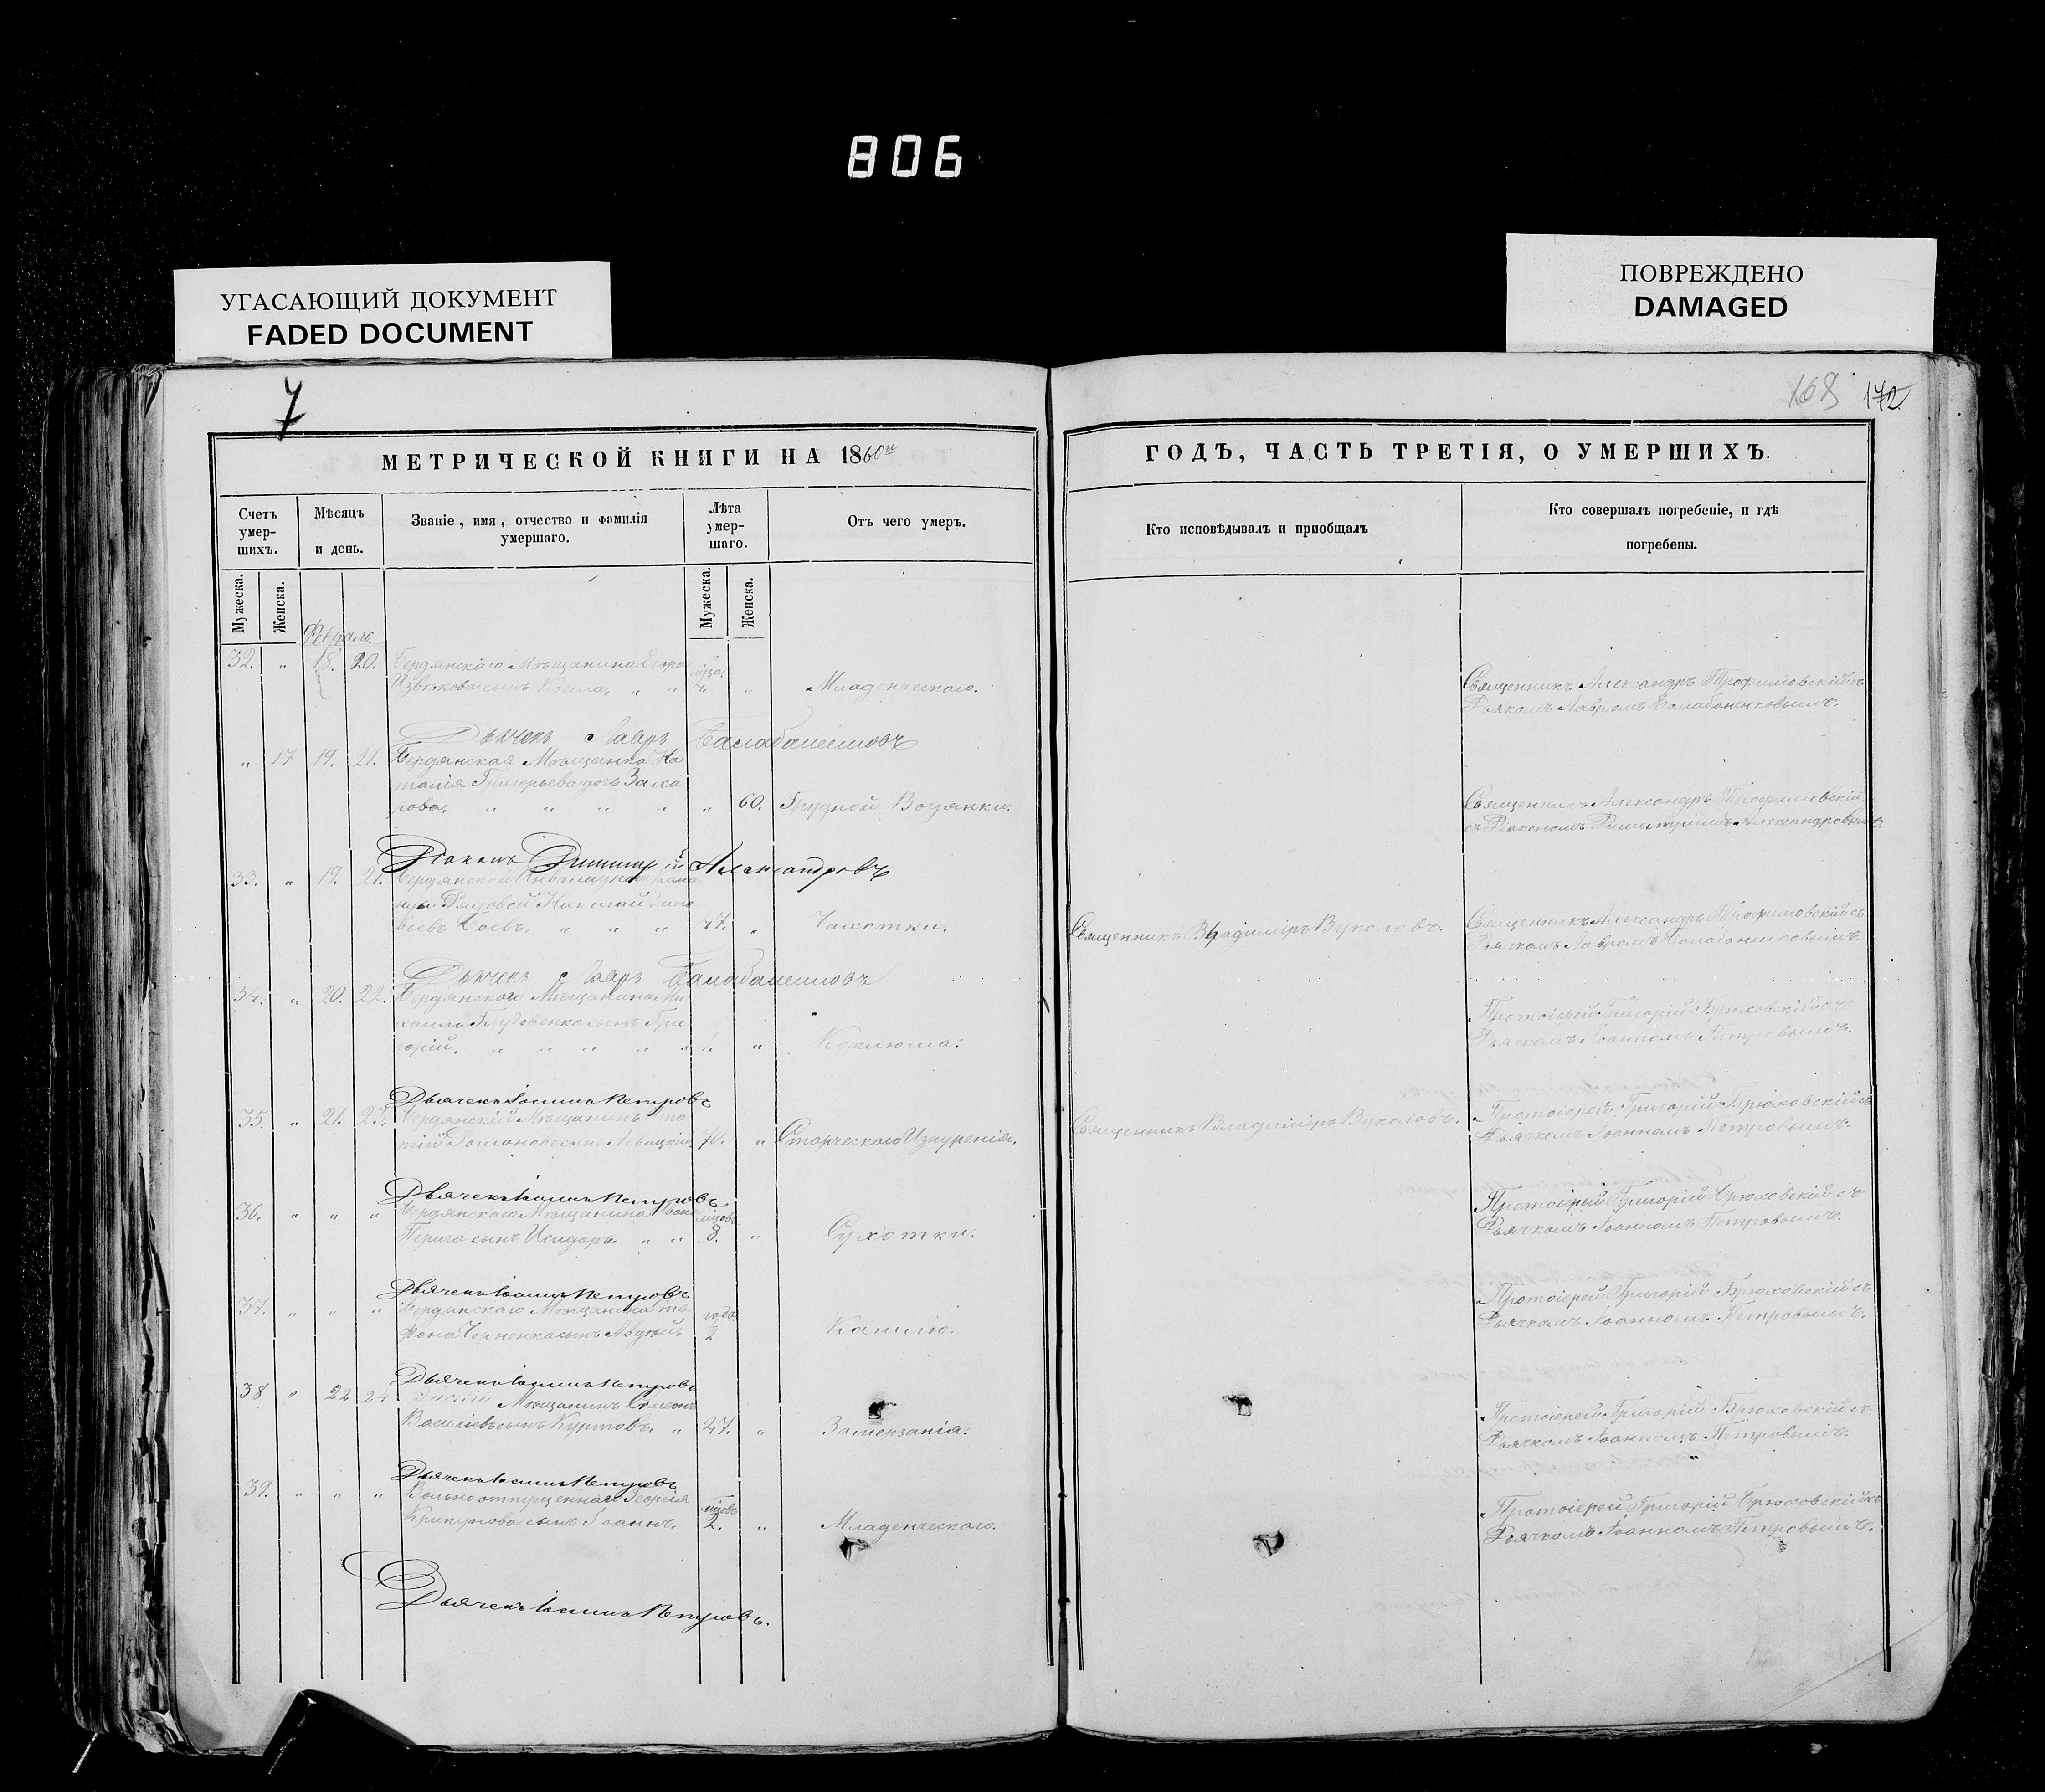 806
УГАСАЮЩИЙ ДОКУМЕНТ
FADED DOCUMENT
ПОВРЕЖДЕНО
DAMAGED
7
168 172
МЕТРИЧЕСКОЙ КНИГИ НА 1860й
ГОДЪ, ЧАСТЬ ТРЕТІЯ, О УМЕРШИХЪ.
Счетъ умер-шихъ.
Мѣсяцъ и день.
Званіе, имя, отчество и фамилія умершаго.
Лѣта умер-шаго.
Отъ чего умеръ.
Кто исповѣдывалъ и приобщалъ
Кто совершалъ погребеніе, и гдѣ погребены.
Мужеска.
Женска.
Мужеска.
Женска.
32. " 18. 20. Бердянскаго Мѣщанина Егора
сынъ Косма. " " " Младенческаго.
Священникъ Александръ Трофимовскій съ
Дьячекъ Лавръ
" 17 19. 21. Бердянская Мѣщанка На
талія Григорьева дочь Заха
рова. " " " " " 60. Грудной Водянки.
Священникъ Александръ Трофимовскій
съ Діакономъ Димитріемъ Александровымъ.
Діаконъ Димитрій Александровъ
33. " 19. 21. Бердянской Инвалидной Кома
нды Рядовой Николай
" " " 47. " Чахотки.
Священникъ Владиміръ Вуколовъ.
Священникъ Александръ Трофимовскій съ
Дьячекъ Лавръ
34. " 20. 22. Бердянского Мѣщанина Ми
хаила сынъ Гри
горій. " " " " " 1. " Коклюша.
Протоіерей Григорій Брюховскій съ
Дьячкомъ Іоанномъ Петровымъ.
Дьячекъ Іоаннъ Петровъ
35. " 21. 23. Бердянскій Мѣщанинъ
сынъ Левицкій. 70. " Старческаго Изнуренія.
Священникъ Владиміръ Вуколовъ.
Протоіерей Григорій Брюховскій съ
Дьячкомъ Іоанномъ Петровымъ.
Дьячекъ Іоаннъ Петровъ
36. " " " Бердянскаго Мѣщанина
сынъ Исидоръ. " " 8. " Сухотки.
Протоіерей Григорій Брюховскій съ
Дьячкомъ Іоанномъ Петровымъ.
Дьячекъ Іоаннъ Петровъ
37. " " " Бердянскаго Мѣщанина Сте года
фана Черненка сынъ Авдѣй. 2 Кашлю.
Протоіерей Григорій Брюховскій съ
Дьячкомъ Іоанномъ Петровымъ.
Дьячекъ Іоаннъ Петровъ
38 " 22 24 Мѣщанинъ Симеонъ
Василіевъ сынъ Куртовъ. " 27. " Замерзанія.
Протоіерей Григорій Брюховскій съ
Дьячкомъ Іоанномъ Петровымъ.
Дьячекъ Іоаннъ Петровъ
39. " " " Вольноотпущеннаго Георгія
Крикунова сынъ Іоаннъ. 2. " Младенческаго.
Протоіерей Григорій Брюховскій съ
Дьячкомъ Іоанномъ Петровымъ.
Дьячекъ Іоаннъ Петровъ.